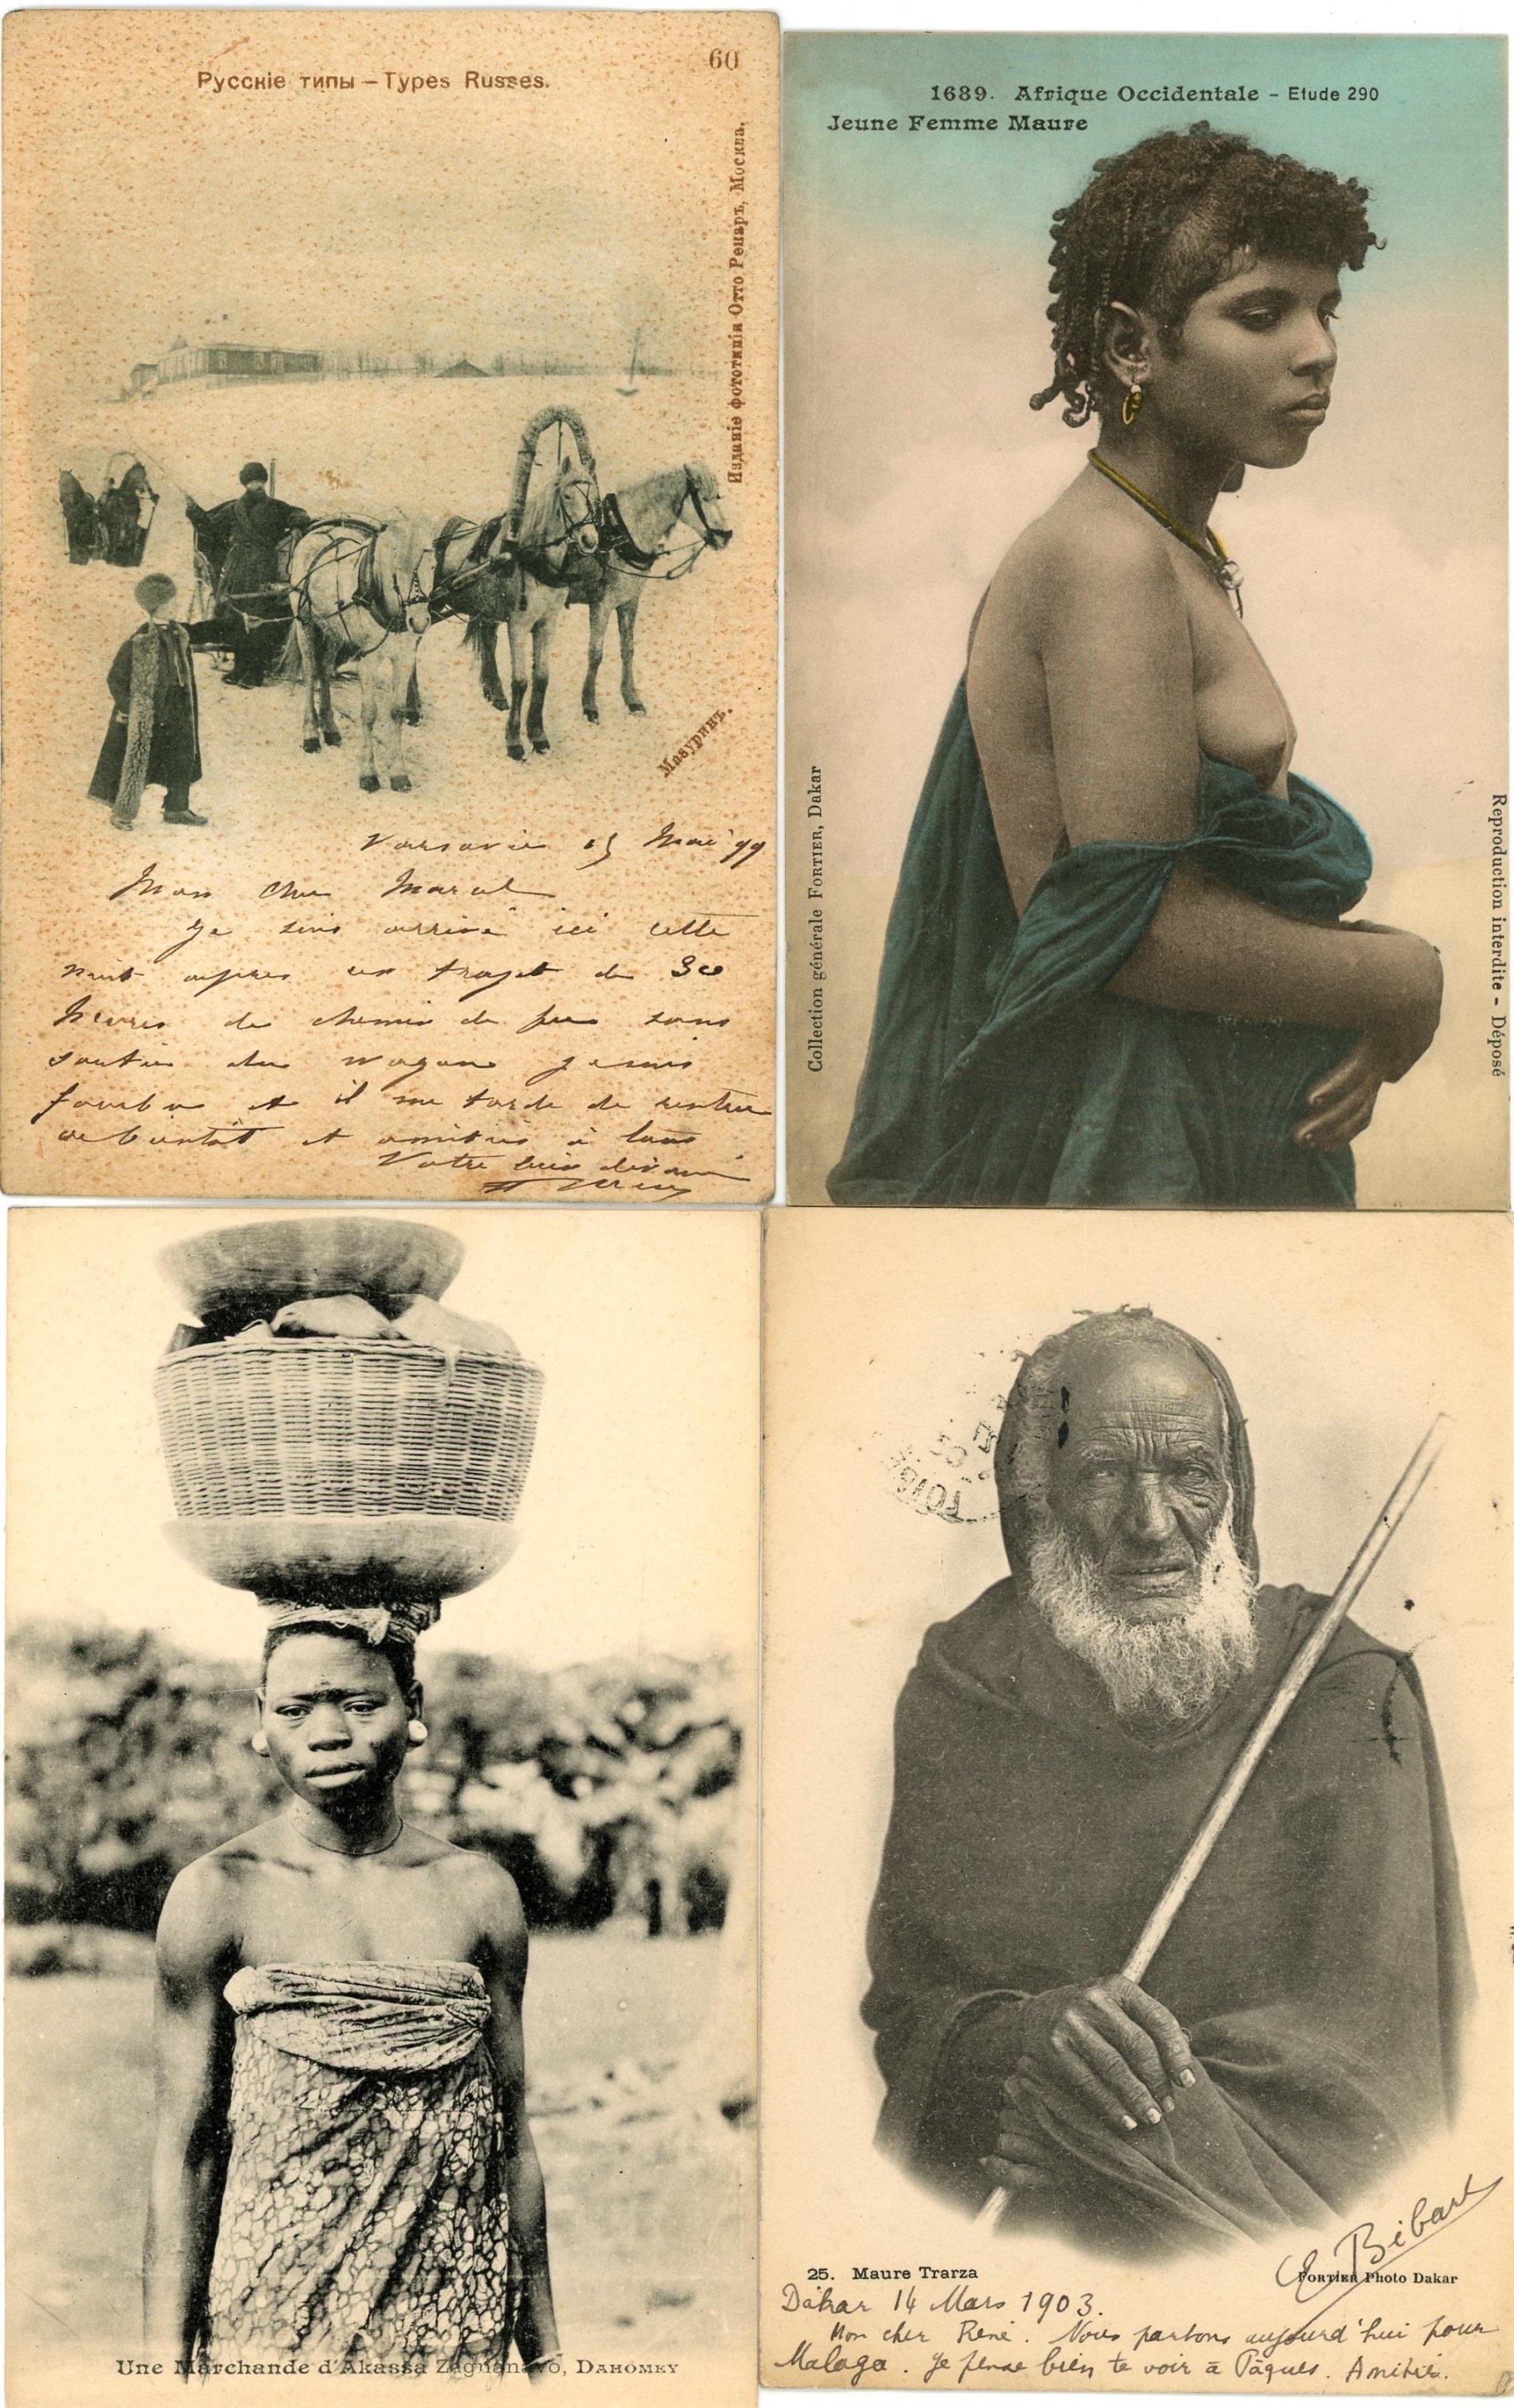 60
Русскіе типы – Types Russes.
Изданіе фототипіи Отто Ренаръ, Москва.
Мазуринъ.
Varsovie 15 Mai 99
Mon cher Marcel
Je suis arrivé ici cette
nuit après un trajet de 30
heures de chemin de fer sans
sortir du wagon je suis
fourbu et il me tarde de rentrer
à bientôt et amitiés à tous
Votre bien dévoué
1689. Afrique Occidentale – Etude 290
Jeune Femme Maure
Collection générale FORTIER, Dakar
Reproduction interdite - Déposé
Une Marchande d'Akassa Zagnanavo, DAHOMEY
25. Maure Trarza
FORTIER Photo Dakar
Bibart
Dakar 14 Mars 1903.
Mon cher René. Nous partons aujourd'hui pour
Malaga. Je pense bien te voir à Pâques. Amitiés.